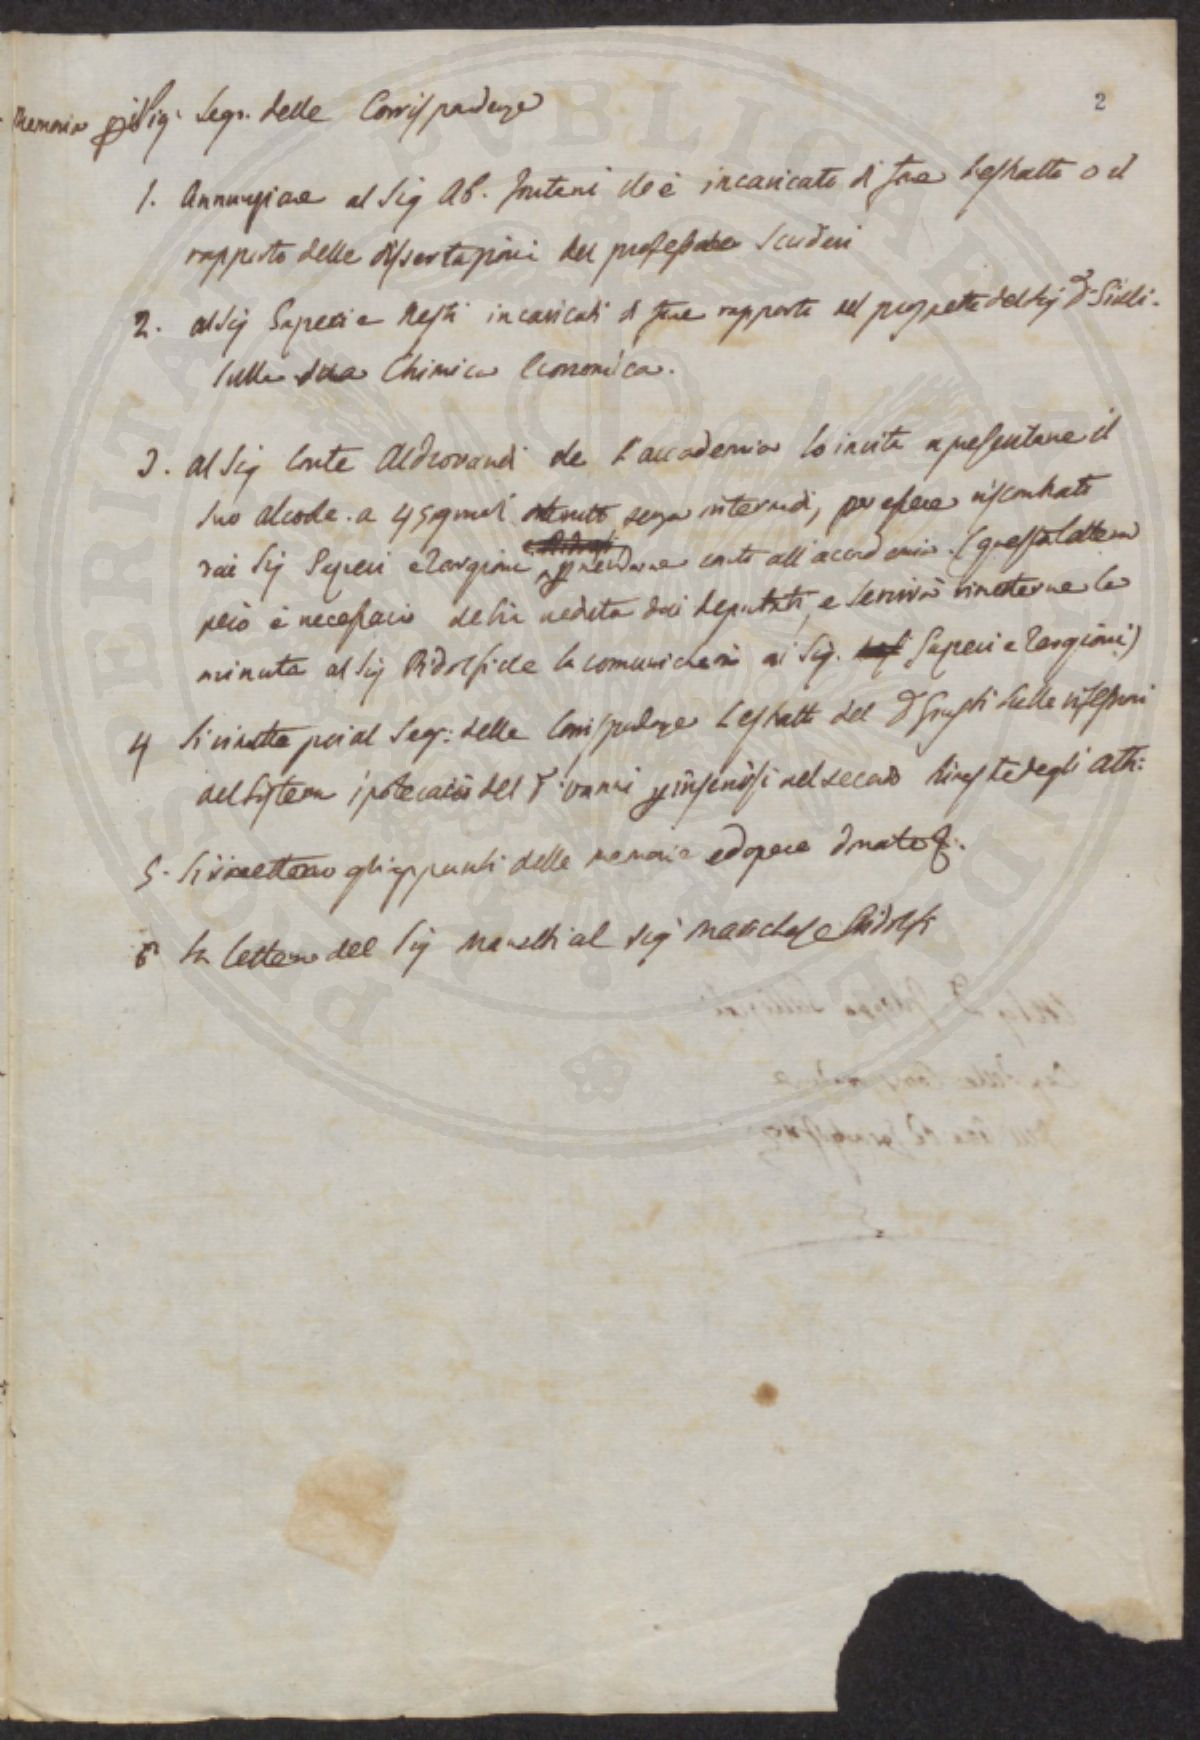 2
Memoria p il Sig. Segr. delle Corrispondenze
1. Annunziare al Sig Ab. Fontani che è incaricato di fare l'estratto o il
rapporto delle dissertazioni del professore Scuderi
2. al Sig Gazeri e Nesti incaricati di fare rapporto del progetto del Sig Dr
sulla sua Chimica Economica.
3. al Sig Conte Aldrovandi che l'accademia lo invita a presentare il
suo alcole a 45 gradi senza intermedi, per essere riscontrato
dai Sig Gazeri e Targioni p renderne conto all'accademia. (questa lettera
però è necessario che sia veduta dai deputati, e servirà rimetterne la
minuta al Sig Ridolfi che la comunicherà ai Sig. Gazeri e Targioni)
4 Si rimette poi al Segr: delle Corrispondenze l'estratto del Dr Giusti sulle riflessioni
del Sistema ipotecario del Dr Vanni p inserirsi nel secondo trimestre degli Atti:
5. Si rimettono gli appunti delle memorie ed opere donate
6 La lettera del Sig Manetti al Sig Marchese Ridolfi
PROSPERITATI PVBLICAE AVGENDAE